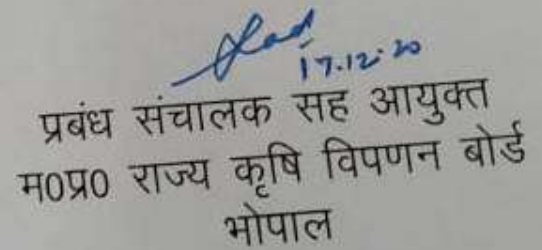 17.12.20
प्रबंध संचालक सह आयुक्त
म0प्र0 राज्य कृषि विपणन बोर्ड
भोपाल